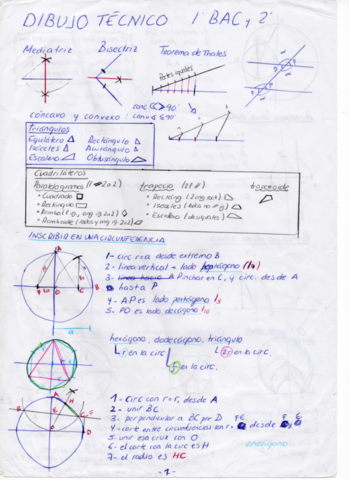 DIBUJO TÉCNICO 1º BAC y 2º
Mediatriz Bisectriz Teorema de Thales
Partes iguales
cóncavo y convexo: conc > 90º
conv ≤ 90º
Triángulos
Equilátero Rectángulo
Isósceles Acutángulo
Escaleno Obtusángulo
Cuadriláteros
Paralelogramos (2 2a2) trapecio (2l //) trapezoide
• Cuadrado • Rectáng (2áng rect)
• Rectángulo • Isósceles
• Rombo • Escaleno (desiguales)
• Romboide
INSCRIBIR EN UNA CIRCUNFERENCIA
1- circ r=a desde extremo B
2- línea vertical → lado heptágono
3- Pinchar en C, y circ. desde A
hasta P
4- AP es lado pentágono l5
5- PO es lado decágono l10
hexágono, dodecágono, triángulo
r en la circ 2r en la circ.
en la circ.
1- Circ con r=r, desde A
2- unir BC
3- perpendicular a BC por D
4- corte entre circunferencias con r= desde
5- unir esa cruz con O
6- el corte con la circ es H
7- el radio es HC
eneágono
-1-